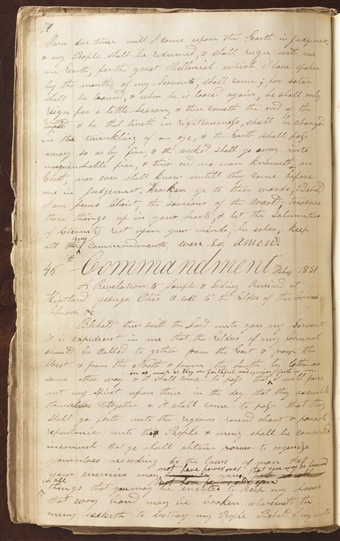 70
in due time will I come upon the Earth in judgement
& my People shall be redeemed, & shall reign with me
on Earth, for the great Millennial which I have spoken
by the mouth of my Servants, shall come; for satan
shall be bound, & when he is loosed again, he shall only
reign for a little season, & then cometh the end of the
& he that liveth in righteousness, shall be changed
in the twinkling of an eye, & the Earth shall pass
away so as by fire, & the wicked shall go away into
unquenchable fire, & their end no man knoweth, on
Earth, nor ever shall know untill they come before
me in judgement, Hearken ye to these words, Behold
I am Jesus Christ, the saviour of the World, treasure
these things up in your hearts, & let the solemnities
of Eternity rest upon your minds, be sober, keep
all my Commandments, even so: Amen.
Commandment 1831
A Revelation to Joseph & Sidney
Kirtland Ohio A call to the Elders of the
Church &c
Behold thus saith the Lord unto you my Servants
it is expedient in me that the Elders of my church
should be called together from the East & from the
West & from the North & from the South by letter or
some other way & it shall come to pass that
in as much as they are faithful
I will pour
out my spirit upon them in the day that they assemble
themselves together & it shall come to pass that they
shall go forth unto the regions round about & preach
repentance unto the People & many shall be converted
insomuch that ye shall obtain power to organize
yourselves according to the laws of man that
your enemies may
not have power over
that you may be
in all
things that you may be enabled to keep my laws
that every band may be broken wherewith the
enemy seeketh to destroy my People Behold I say unto